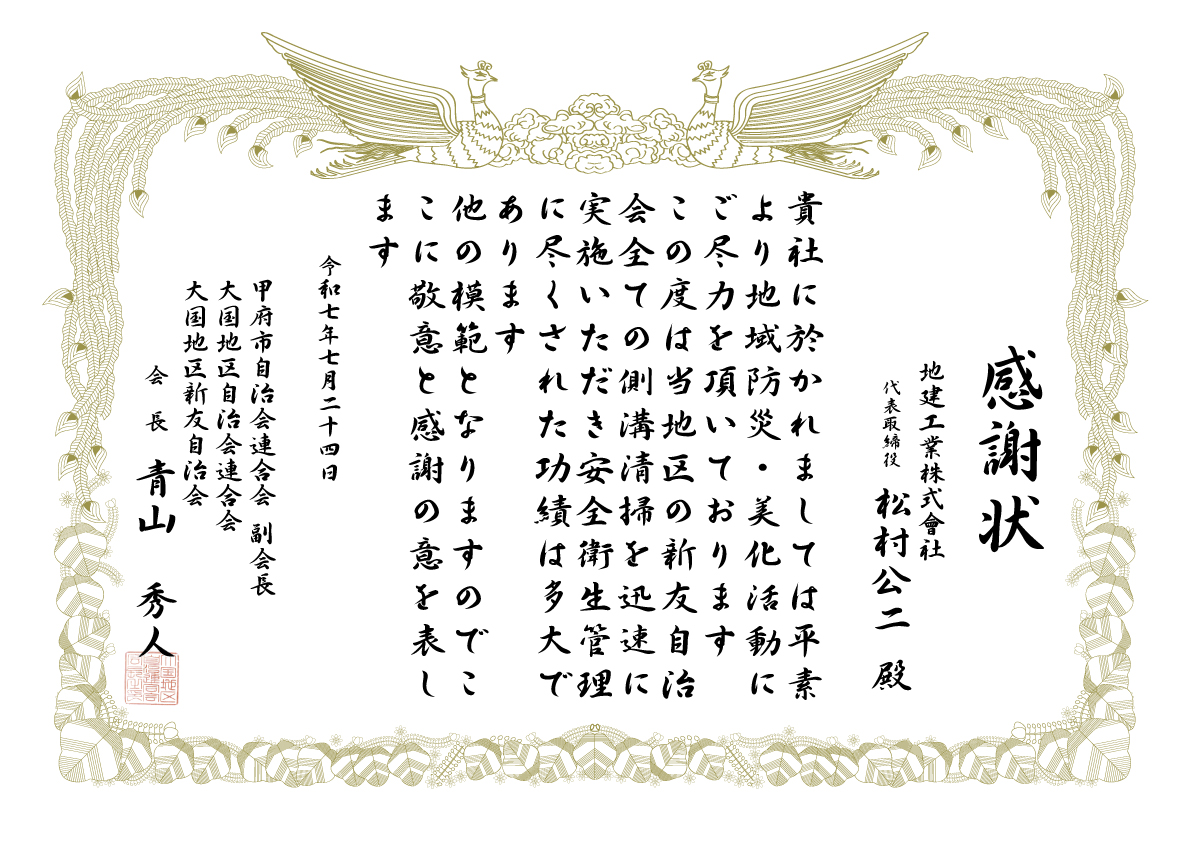 感謝状
地建工業株式會社
代表取締役
松村公二 殿
貴社に於かれましては平素
より地域防災・美化活動に
ご尽力を頂いております
この度は当地区の新友自治
会全ての側溝清掃を迅速に
実施いただき安全衛生管理
に尽くされた功績は多大で
あります
他の模範となりますのでこ
こに敬意と感謝の意を表し
ます
令和七年七月二十四日
甲府市自治会連合会 副会長
大国地区自治会連合会
大国地区新友自治会
会長 青山 秀人